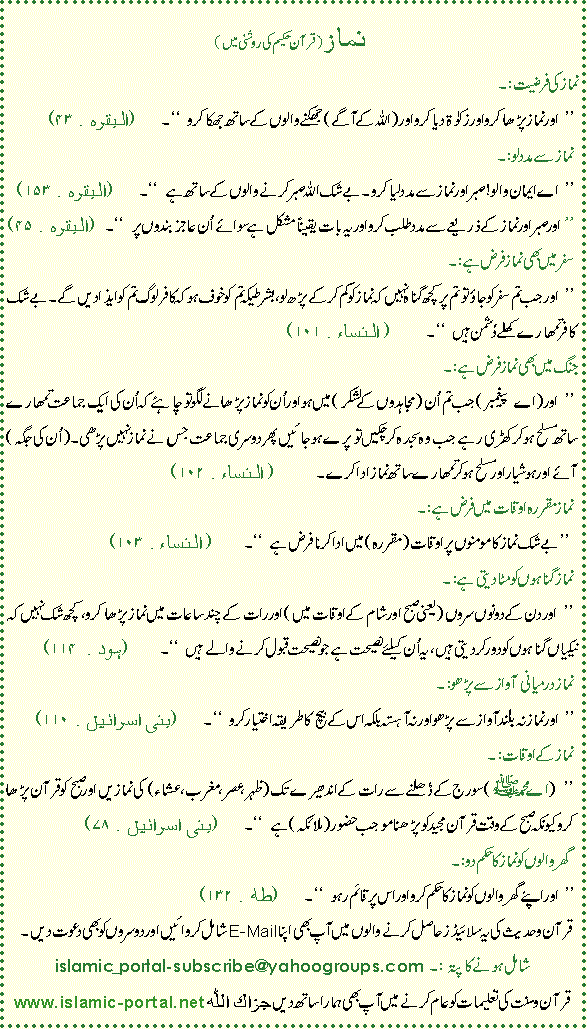 نماز (قرآن حکیم کی روشنی میں)
نماز کی فرضیت:۔
’’ اور نماز پڑھا کرو اور زکوۃ دیا کرو اور (اللہ کے آگے) جھکنے والوں کے ساتھ جھکا کرو ‘‘۔ (البقرہ . ۴۳)
نماز سے مدد لو:۔
’’ اے ایمان والو! صبر اور نماز سے مدد لیا کرو۔ بے شک اللہ صبر کرنے والوں کے ساتھ ہے ‘‘۔ (البقرہ . ۱۵۳)
’’ اور صبر اور نماز کے ذریعے سے مدد طلب کرو اور یہ بات یقیناً مشکل ہے سوائے اُن عاجز بندوں پر ‘‘۔ (البقرہ . ۴۵)
سفر میں بھی نماز فرض ہے:۔
’’ اور جب تم سفر کو جاؤ تو تم پر کچھ گناہ نہیں کہ نماز کو کم کر کے پڑھ لو، بشرطیکہ تم کو خوف ہو کہ کافر لوگ تم کو ایذا دیں گے۔ بے شک
کافر تمھارے کھلے دُشمن ہیں ‘‘۔ (النساء . ۱۰۱)
جنگ میں بھی نماز فرض ہے:۔
’’ اور (اے پیغمبر) جب تم اُن (مجاہدوں کے لشکر) میں ہو اور اُن کو نماز پڑھانے لگو تو چاہئے کہ اُن کی ایک جماعت تمھارے
ساتھ مسلح ہو کر کھڑی رہے جب وہ سجدہ کر چکیں تو پرے ہو جائیں پھر دوسری جماعت جس نے نماز نہیں پڑھی۔ (اُن کی جگہ)
آئے اور ہوشیار اور مسلح ہو کر تمھارے ساتھ نماز ادا کرے۔ (النساء . ۱۰۲)
نماز مقررہ اوقات میں فرض ہے:۔
’’ بے شک نماز کا مومنوں پر اوقات (مقررہ) میں ادا کرنا فرض ہے ‘‘۔ (النساء . ۱۰۳)
نماز گناہوں کو مٹا دیتی ہے:۔
’’ اور دن کے دونوں سروں (یعنی صبح اور شام کے اوقات میں) اور رات کے چند ساعات میں نماز پڑھا کرو، کچھ شک نہیں کہ
نیکیاں گناہوں کو دور کر دیتی ہیں، یہ اُن کیلئے نصیحت ہے جو نصیحت قبول کرنے والے ہیں ‘‘۔ (ہود . ۱۱۴)
نماز درمیانی آواز سے پڑھو:۔
’’ اور نماز نہ بلند آواز سے پڑھو اور نہ آہستہ بلکہ اس کے بیچ کا طریقہ اختیار کرو ‘‘۔ (بنی اسرائیل . ۱۱۰)
نماز کے اوقات:۔
’’ (اے محمد ﷺ) سورج کے ڈھلنے سے رات کے اندھیرے تک (ظہر، عصر، مغرب، عشاء) کی نمازیں اور صبح کو قرآن پڑھا
کرو کیونکہ صبح کے وقت قرآن مجید کو پڑھنا موجب حضور (ملائکہ) ہے ‘‘۔ (بنی اسرائیل . ۷۸)
گھر والوں کو نماز کا حکم دو:۔
’’ اور اپنے گھر والوں کو نماز کا حکم کرو اور اس پر قائم رہو ‘‘۔ (طه . ۱۳۲)
قرآن و حدیث کی یہ سلائیڈز حاصل کرنے والوں میں آپ بھی اپنا E-Mail شامل کروائیں اور دوسروں کو بھی دعوت دیں۔
شامل ہونے کا پتہ :۔ islamic_portal-subscribe@yahoogroups.com
قرآن و سنت کی تعلیمات کو عام کرنے میں آپ بھی ہمارا ساتھ دیں جزاك الله www.islamic-portal.net